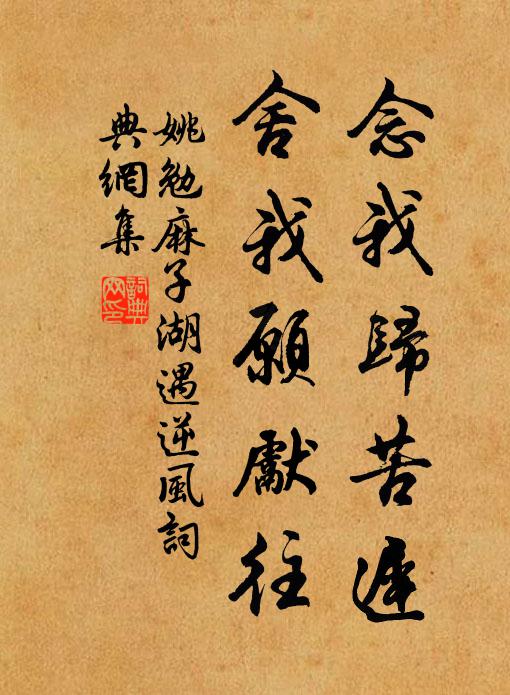 念我歸苦遲
舍我願獻往
姚勉麻子湖遇逆風詞
典網集
詞典网印